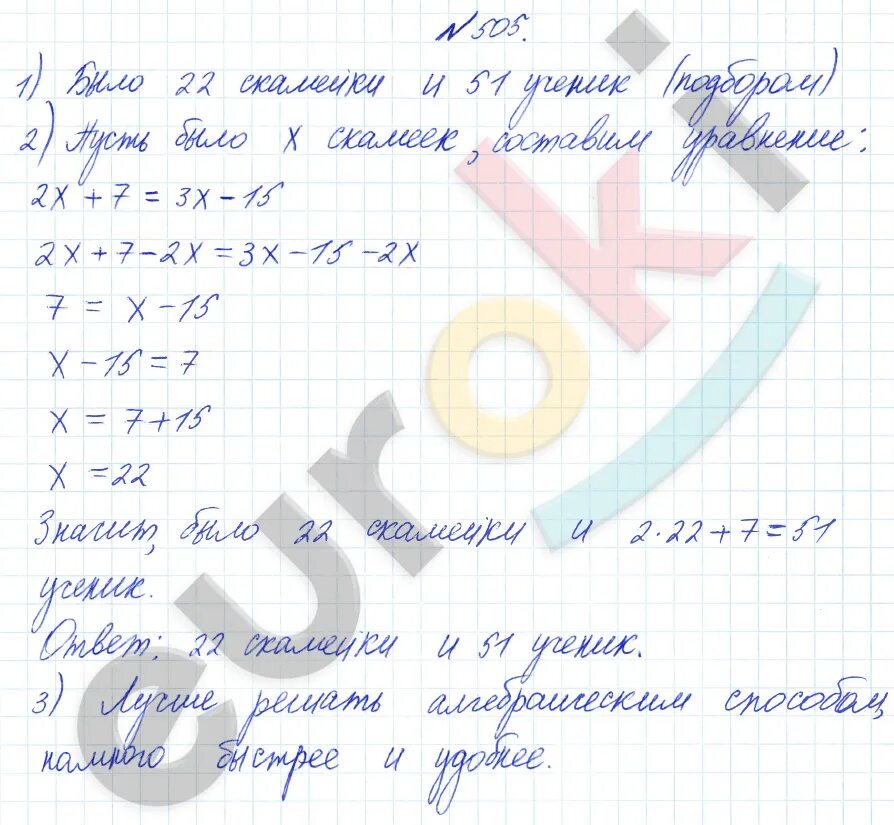 № 505.
1) Было 22 скамейки и 51 ученик (подбором)
2) Пусть было х скамеек, составим уравнение:
2х + 7 = 3х - 15
2х + 7 - 2х = 3х - 15 - 2х
7 = х - 15
х - 15 = 7
х = 7 + 15
х = 22
Значит, было 22 скамейки и 2·22 + 7 = 51
ученик.
Ответ: 22 скамейки и 51 ученик.
3) Лучше решать алгебраическим способом,
намного быстрее и удобнее.
euroki